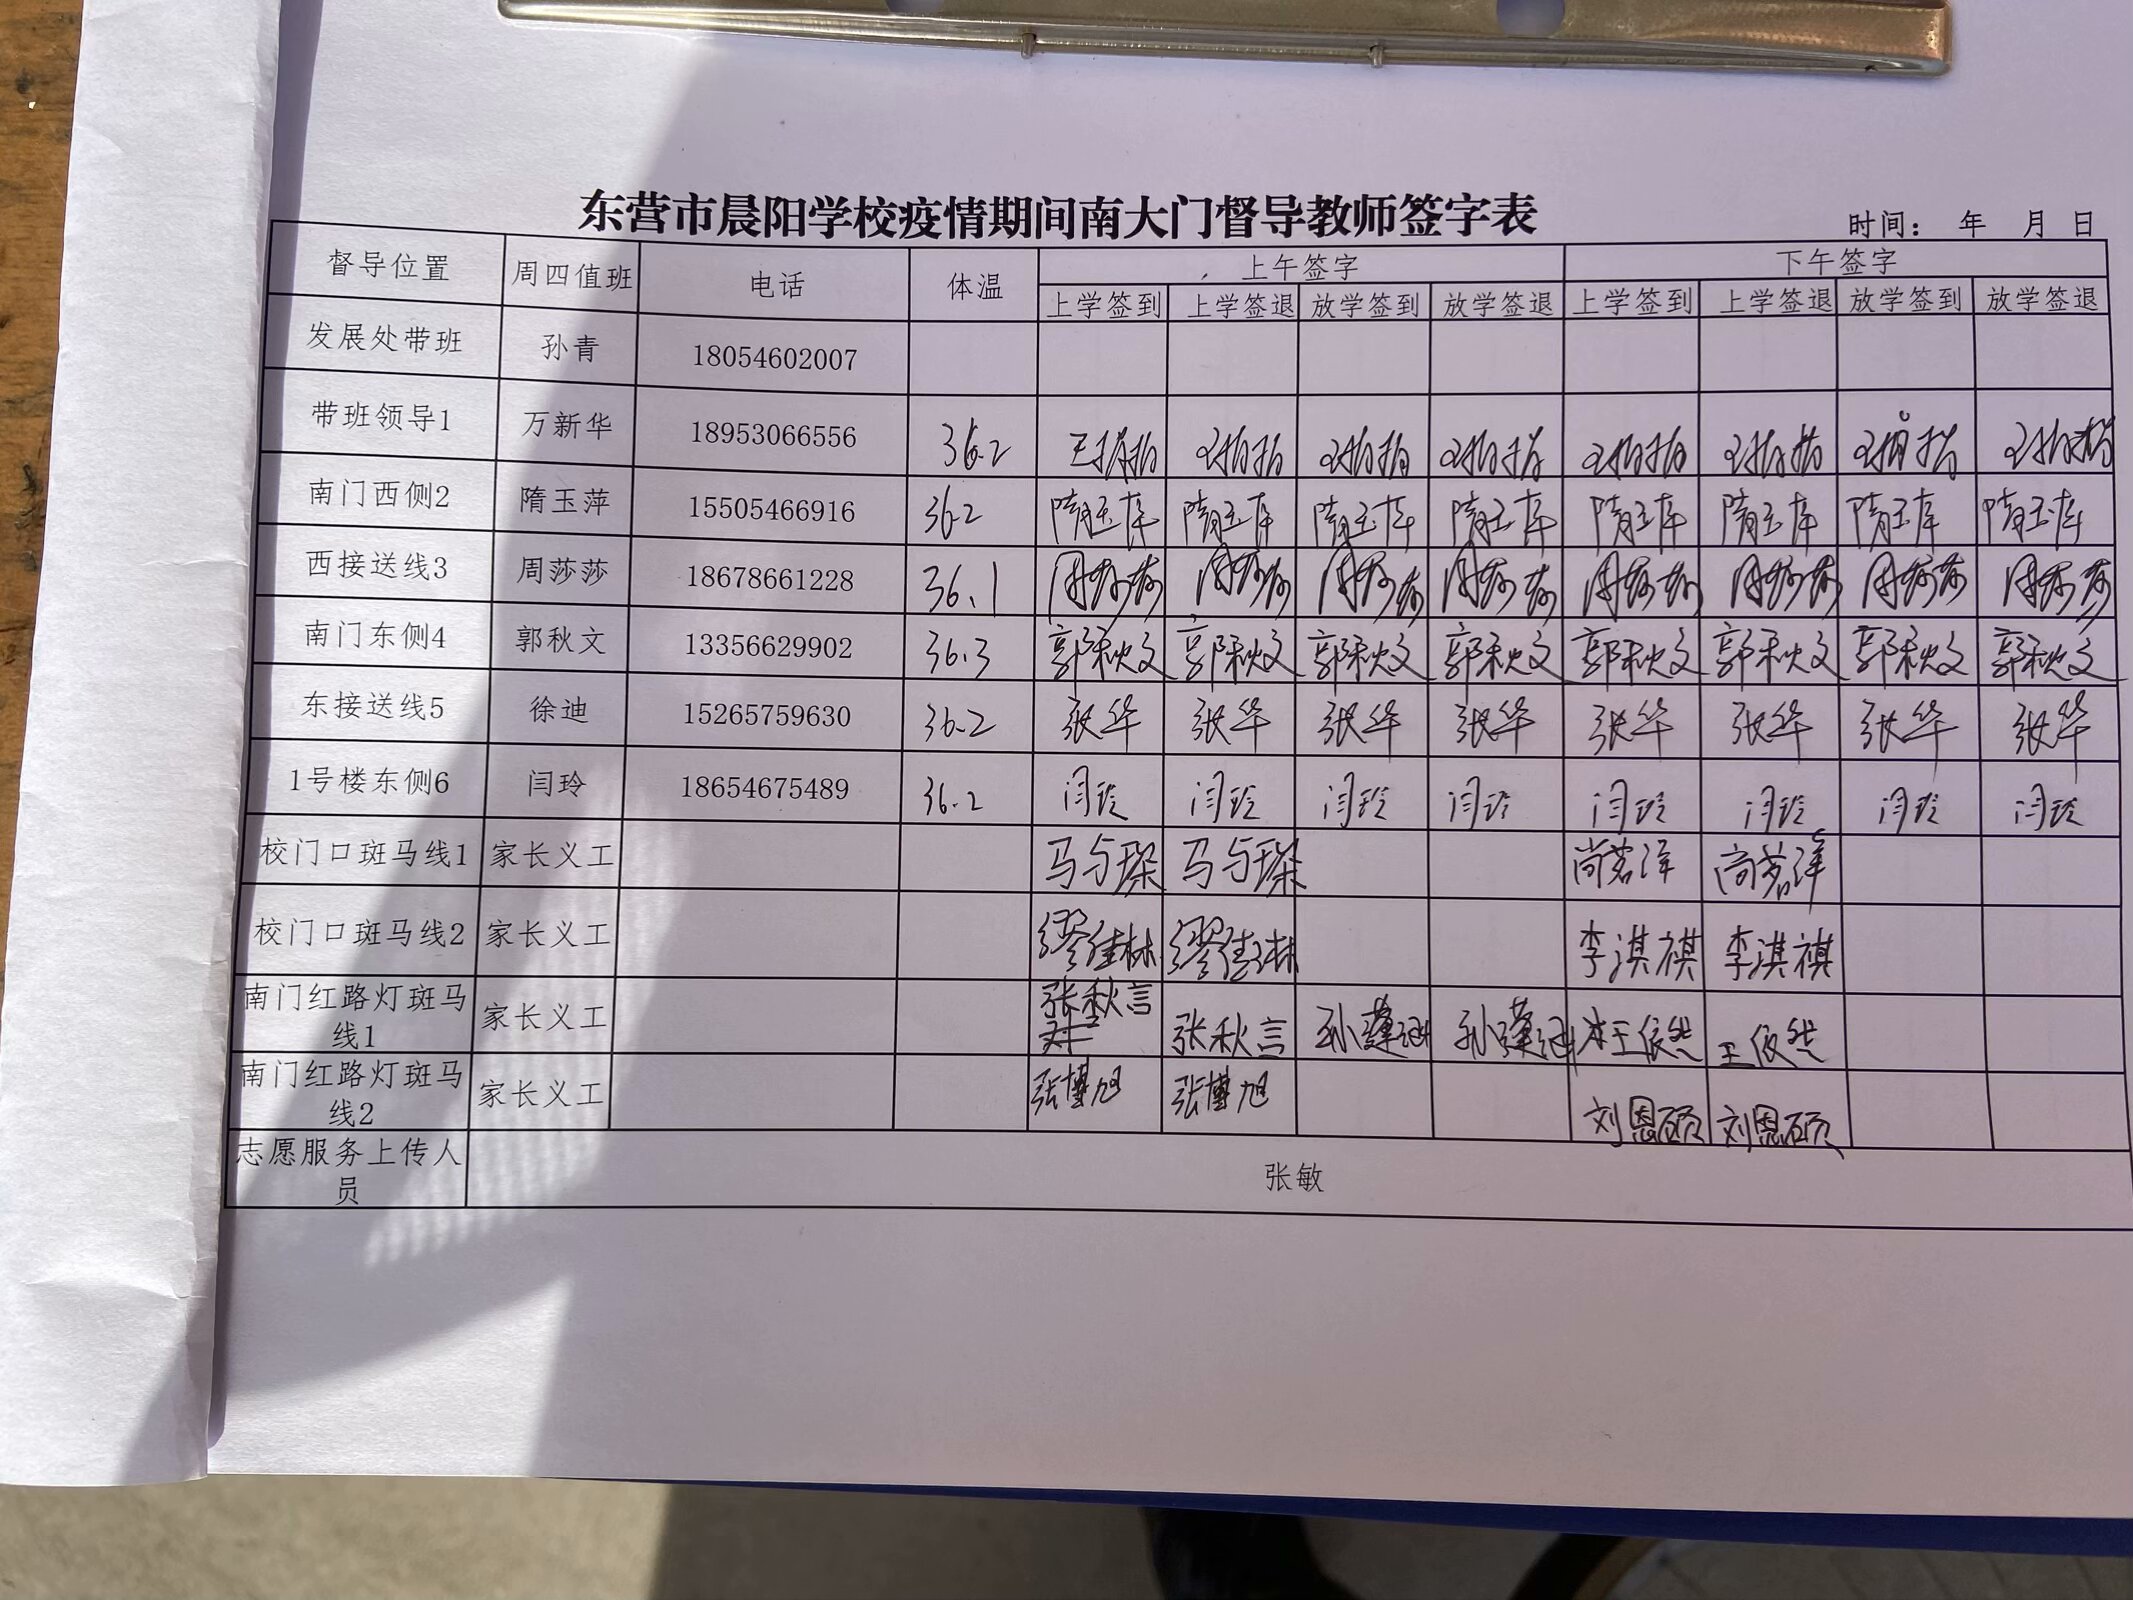 东营市晨阳学校疫情期间南大门督导教师签字表
时间： 年 月 日
督导位置 周四值班 电话 体温 上午签字 下午签字
上学签到 上学签退 放学签到 放学签退 上学签到 上学签退 放学签到 放学签退
发展处带班 孙青 18054602007
带班领导1 万新华 18953066556 36.2
南门西侧2 隋玉萍 15505466916 36.2 隋玉萍 隋玉萍 隋玉萍 隋玉萍 隋玉萍 隋玉萍 隋玉萍 隋玉萍
西接送线3 周莎莎 18678661228 36.1 周莎莎 周莎莎 周莎莎 周莎莎 周莎莎 周莎莎 周莎莎 周莎莎
南门东侧4 郭秋文 13356629902 36.3 郭秋文 郭秋文 郭秋文 郭秋文 郭秋文 郭秋文 郭秋文 郭秋文
东接送线5 徐迪 15265759630 36.2 张华 张华 张华 张华 张华 张华 张华 张华
1号楼东侧6 闫玲 18654675489 36.2 闫玲 闫玲 闫玲 闫玲 闫玲 闫玲 闫玲 闫玲
校门口斑马线1 家长义工 马与琛 马与琛 尚茗洋 尚茗洋
校门口斑马线2 家长义工 缪佳林 缪佳林 李淇祺 李淇祺
南门红路灯斑马 家长义工 张秋言 张秋言 王依然 王依然
线1
南门红路灯斑马 家长义工 张博旭 张博旭 刘恩硕 刘恩硕
线2
志愿服务上传人 张敏
员